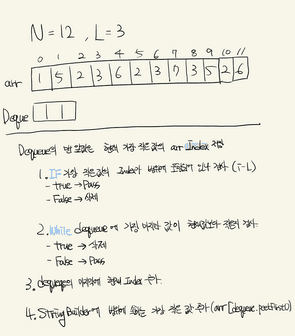 N = 12 , L = 3
0 1 2 3 4 5 6 7 8 9 10 11
arr 1 5 2 3 6 2 3 7 3 5 2 6
Deque
Dequeue의 맨 앞에는 현재 가장 작은 값의 arr Index 저장
1. IF 가장 작은 값의 Index가 범위에 포함되어 있나 검사 (i-L)
- true → Pass
- False → 삭제
2. While dequeue에 가장 마지막 값이 현재값보다 작은지 검사.
- true → 삭제
- False → Pass
3. dequeue의 마지막에 현재 Index 추가.
4. StringBuilder에 범위에 속하는 가장 작은 값 추가 (arr[dequeue.peekFirst()])